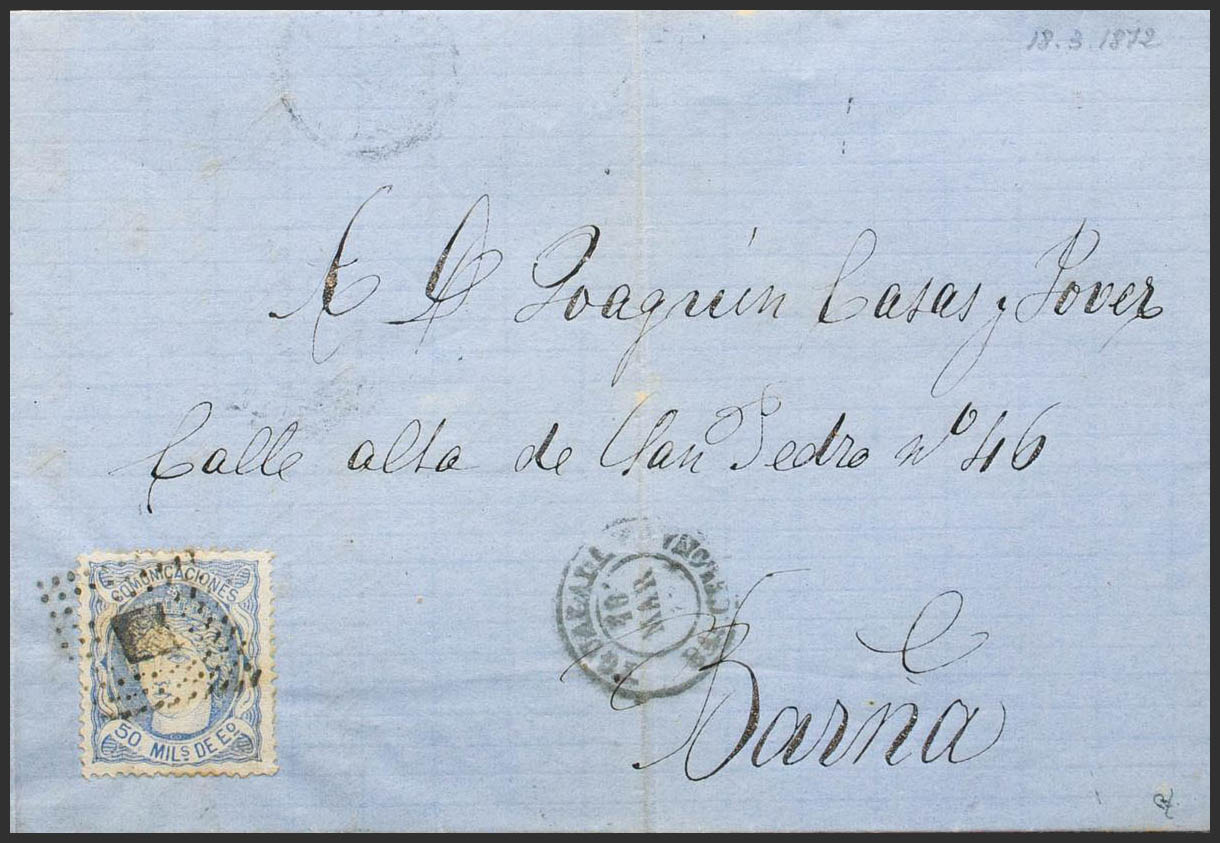 18.3.1872
A D Joaquin Casas y Jover
Calle alta de San Pedro nº 46
COMUNICACIONES
50 MILS DE Eº
IGUALADA
BARCELONA
18
MAR
Barña